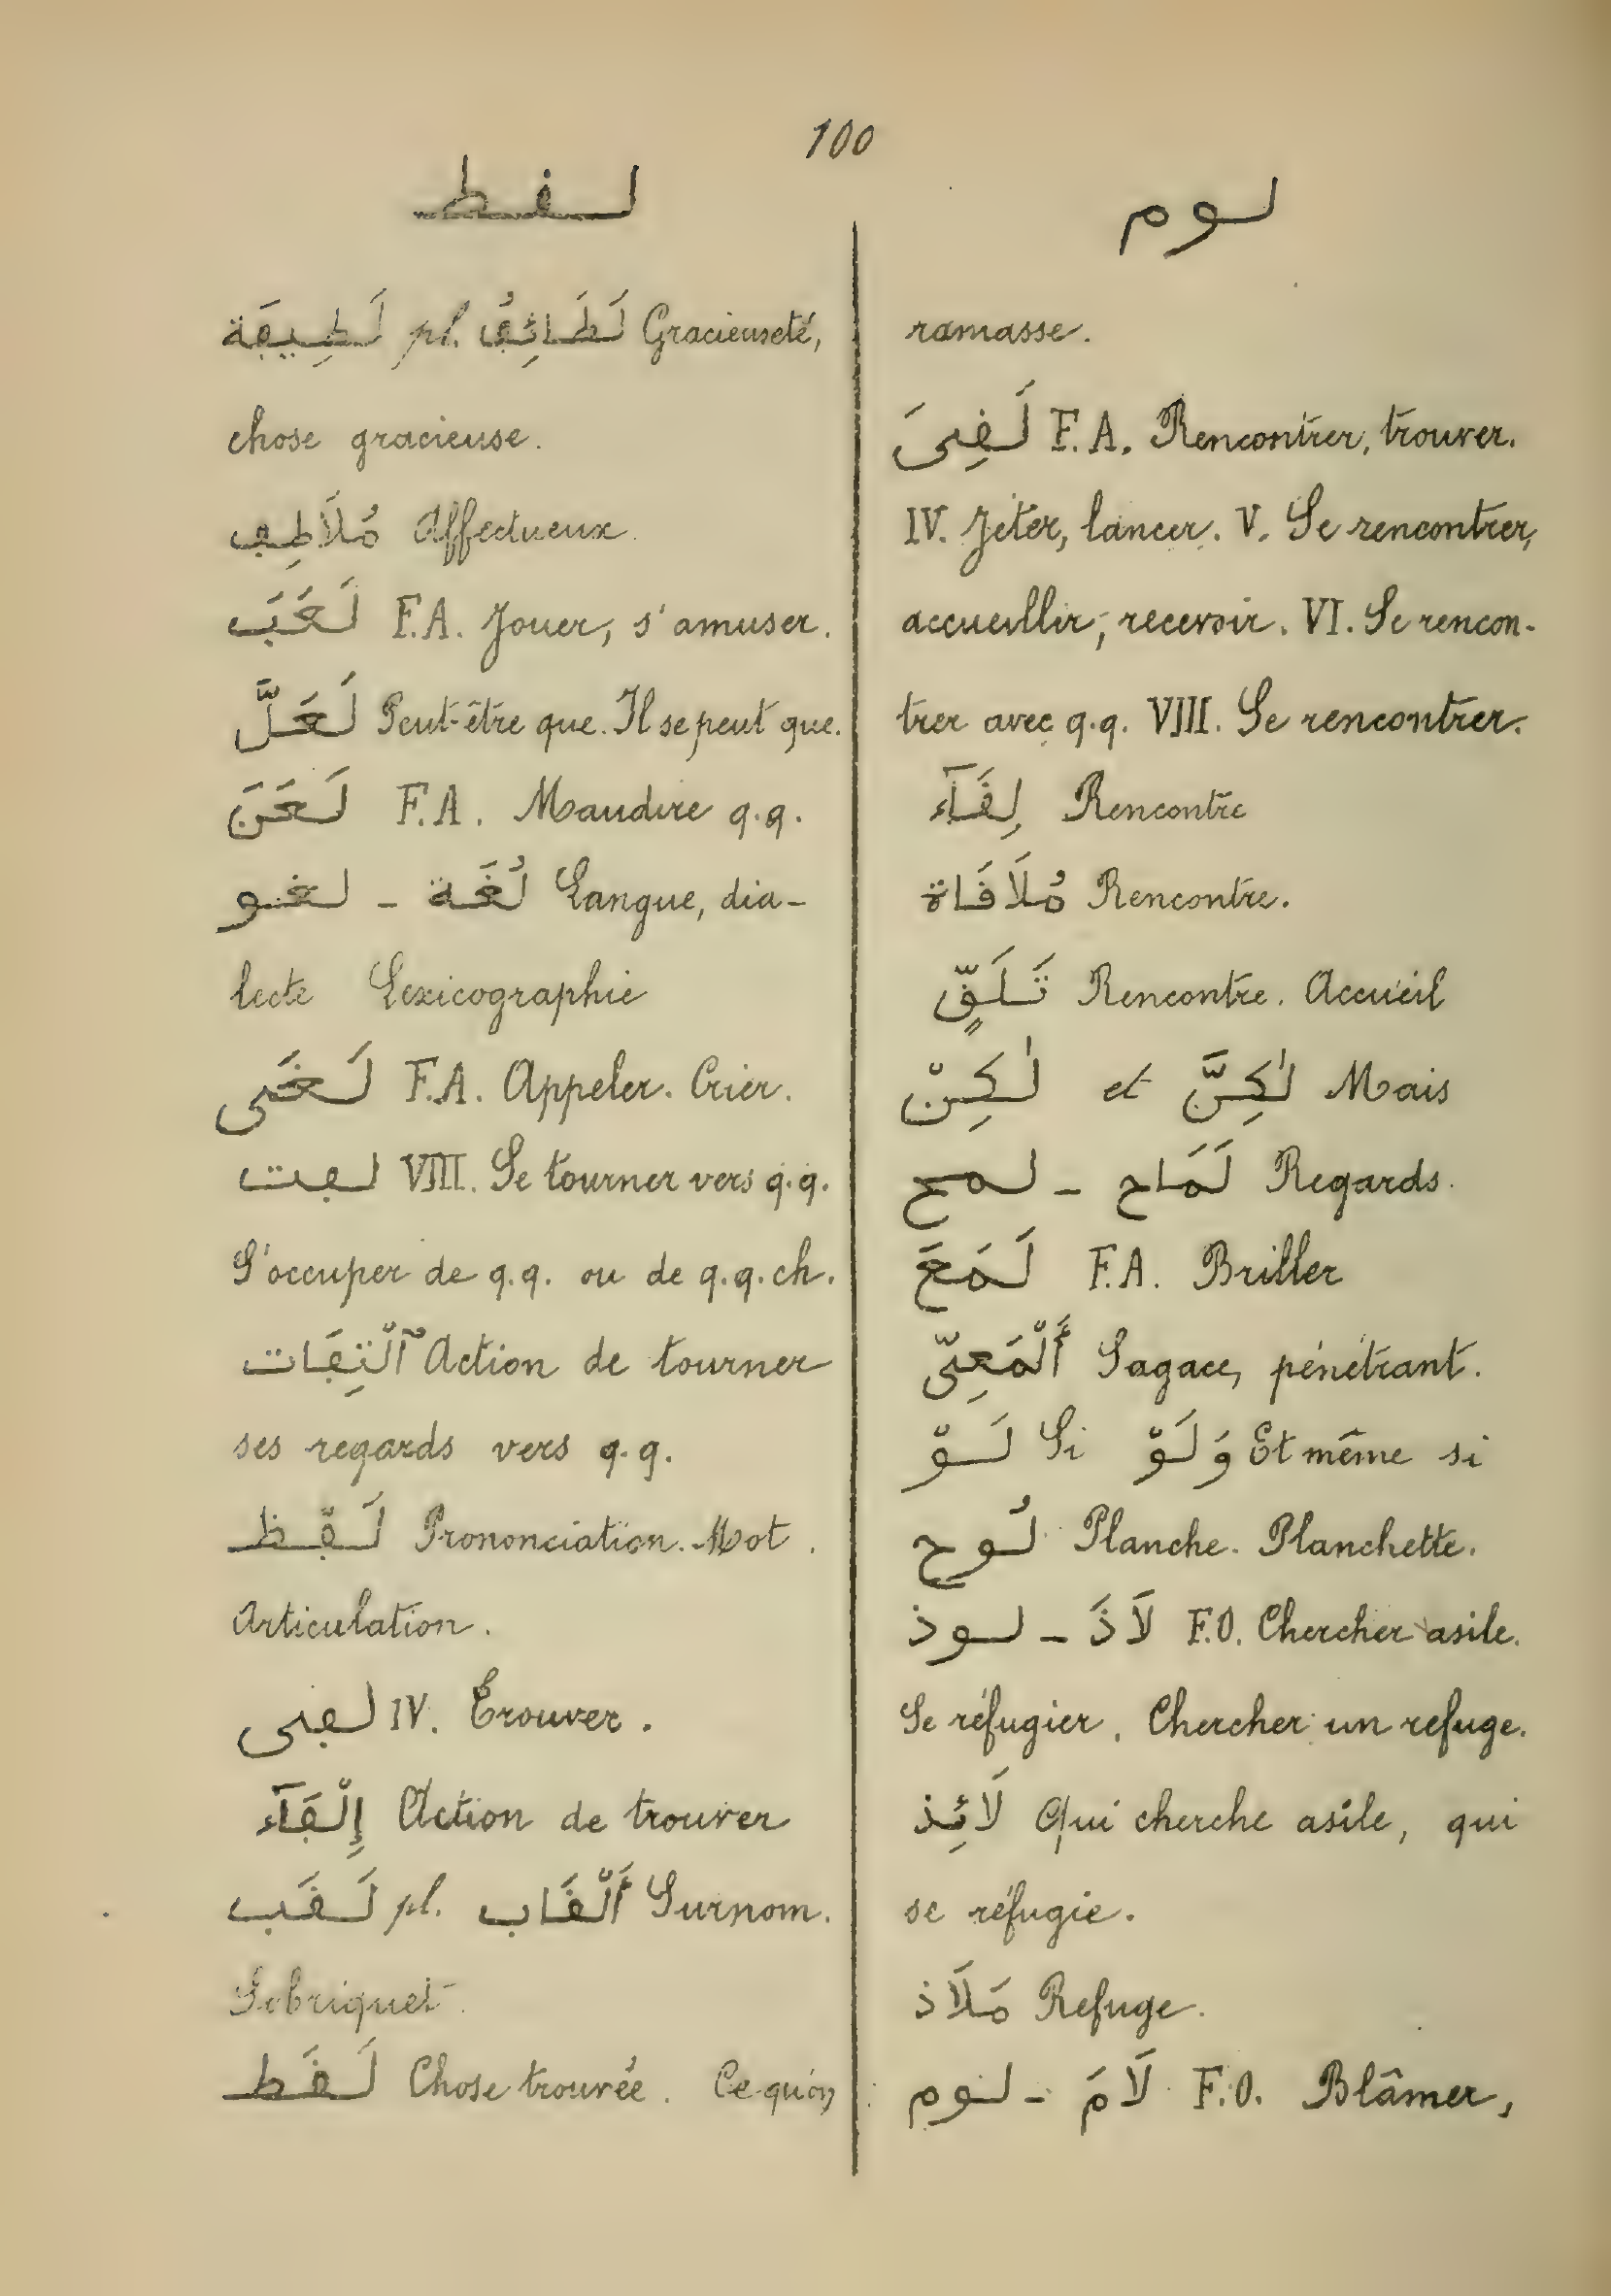 100
لقط
لَطِيفَة pl. لَطَائِفُ Gracieuseté,
chose gracieuse.
مُلَاطِف Affectueux.
لَعَبَ F.A. Jouer, s'amuser.
لَعَلَّ Peut-être que. Il se peut que.
لَعَنَ F.A. Maudire q.q.
لغو - لُغَة Langue, dia-
lecte Lexicographie
لَغَى F.A. Appeler. Crier.
لفت VIII. Se tourner vers q.q.
S'occuper de q.q. ou de q.q.ch.
ٱلْتِفَات Action de tourner
ses regards vers q.q.
لَفْظ Prononciation. Mot.
Articulation.
لفى IV. Trouver.
إِلْفَآء Action de trouver
لَقَب pl. أَلْقَاب Surnom.
Sobriquet.
لَقَط Chose trouvée. Ce qu'on
لوم
ramasse.
لَقِىَ F.A. Rencontrer, trouver.
IV. Jeter, lancer. V. Se rencontrer,
accueillir, recevoir. VI. Se rencon-
trer avec q.q. VIII. Se rencontrer.
لِقَآء Rencontre
مُلَاقَاة Rencontre.
تَلَقٍّ Rencontre. Accueil
لٰكِنْ et لٰكِنَّ Mais
لمح - لَمَاح Regards.
لَمَعَ F.A. Briller
أَلْمَعِىّ Sagace, pénétrant.
لَوْ Si وَلَوْ Et même si
لُوح Planche. Planchette.
لوذ - لَاذَ F.O. Chercher asile.
Se réfugier. Chercher un refuge.
لَائِذ Qui cherche asile, qui
se réfugie.
مَلَاذ Refuge.
لوم - لَامَ F.O. Blâmer,